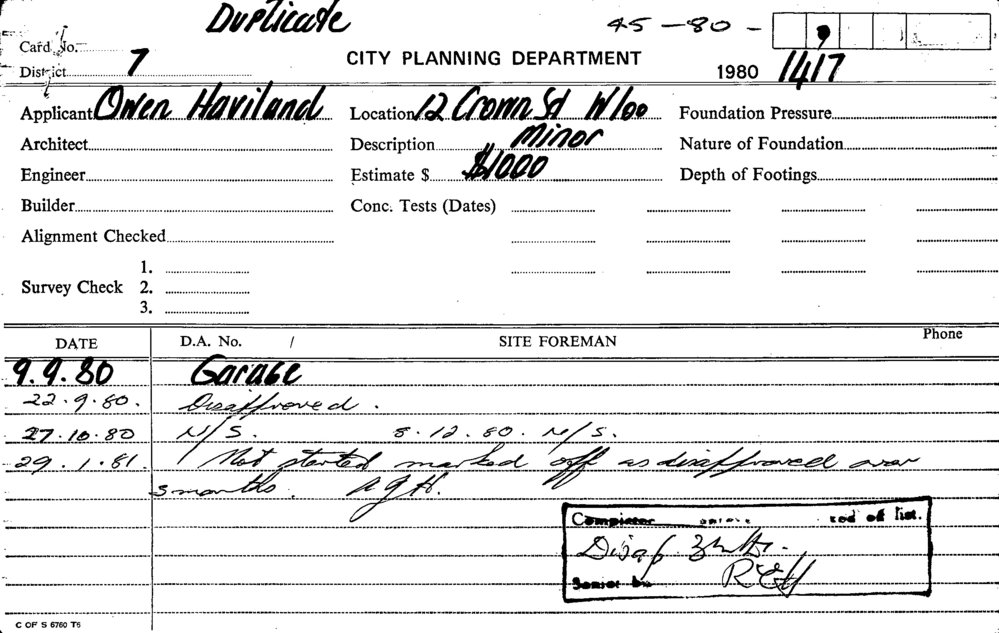 Duplicate
45-80-
Card No.
CITY PLANNING DEPARTMENT
District 7
1980 1417
Applicant Owen Haviland Location 12 Crown St W/loo Foundation Pressure
Architect Description Minor Nature of Foundation
Engineer Estimate $ $1000 Depth of Footings
Builder Conc. Tests (Dates)
Alignment Checked
1.
Survey Check 2.
3.
DATE D.A. No. / SITE FOREMAN Phone
9.9.80 Garage
22.9.80. Disapproved.
27.10.80 N/S. 8.12.80. N/S.
29.1.81. Not started marked off as disapproved over
3 months. AGH.
of list.
Disap
C OF S 6760 T6